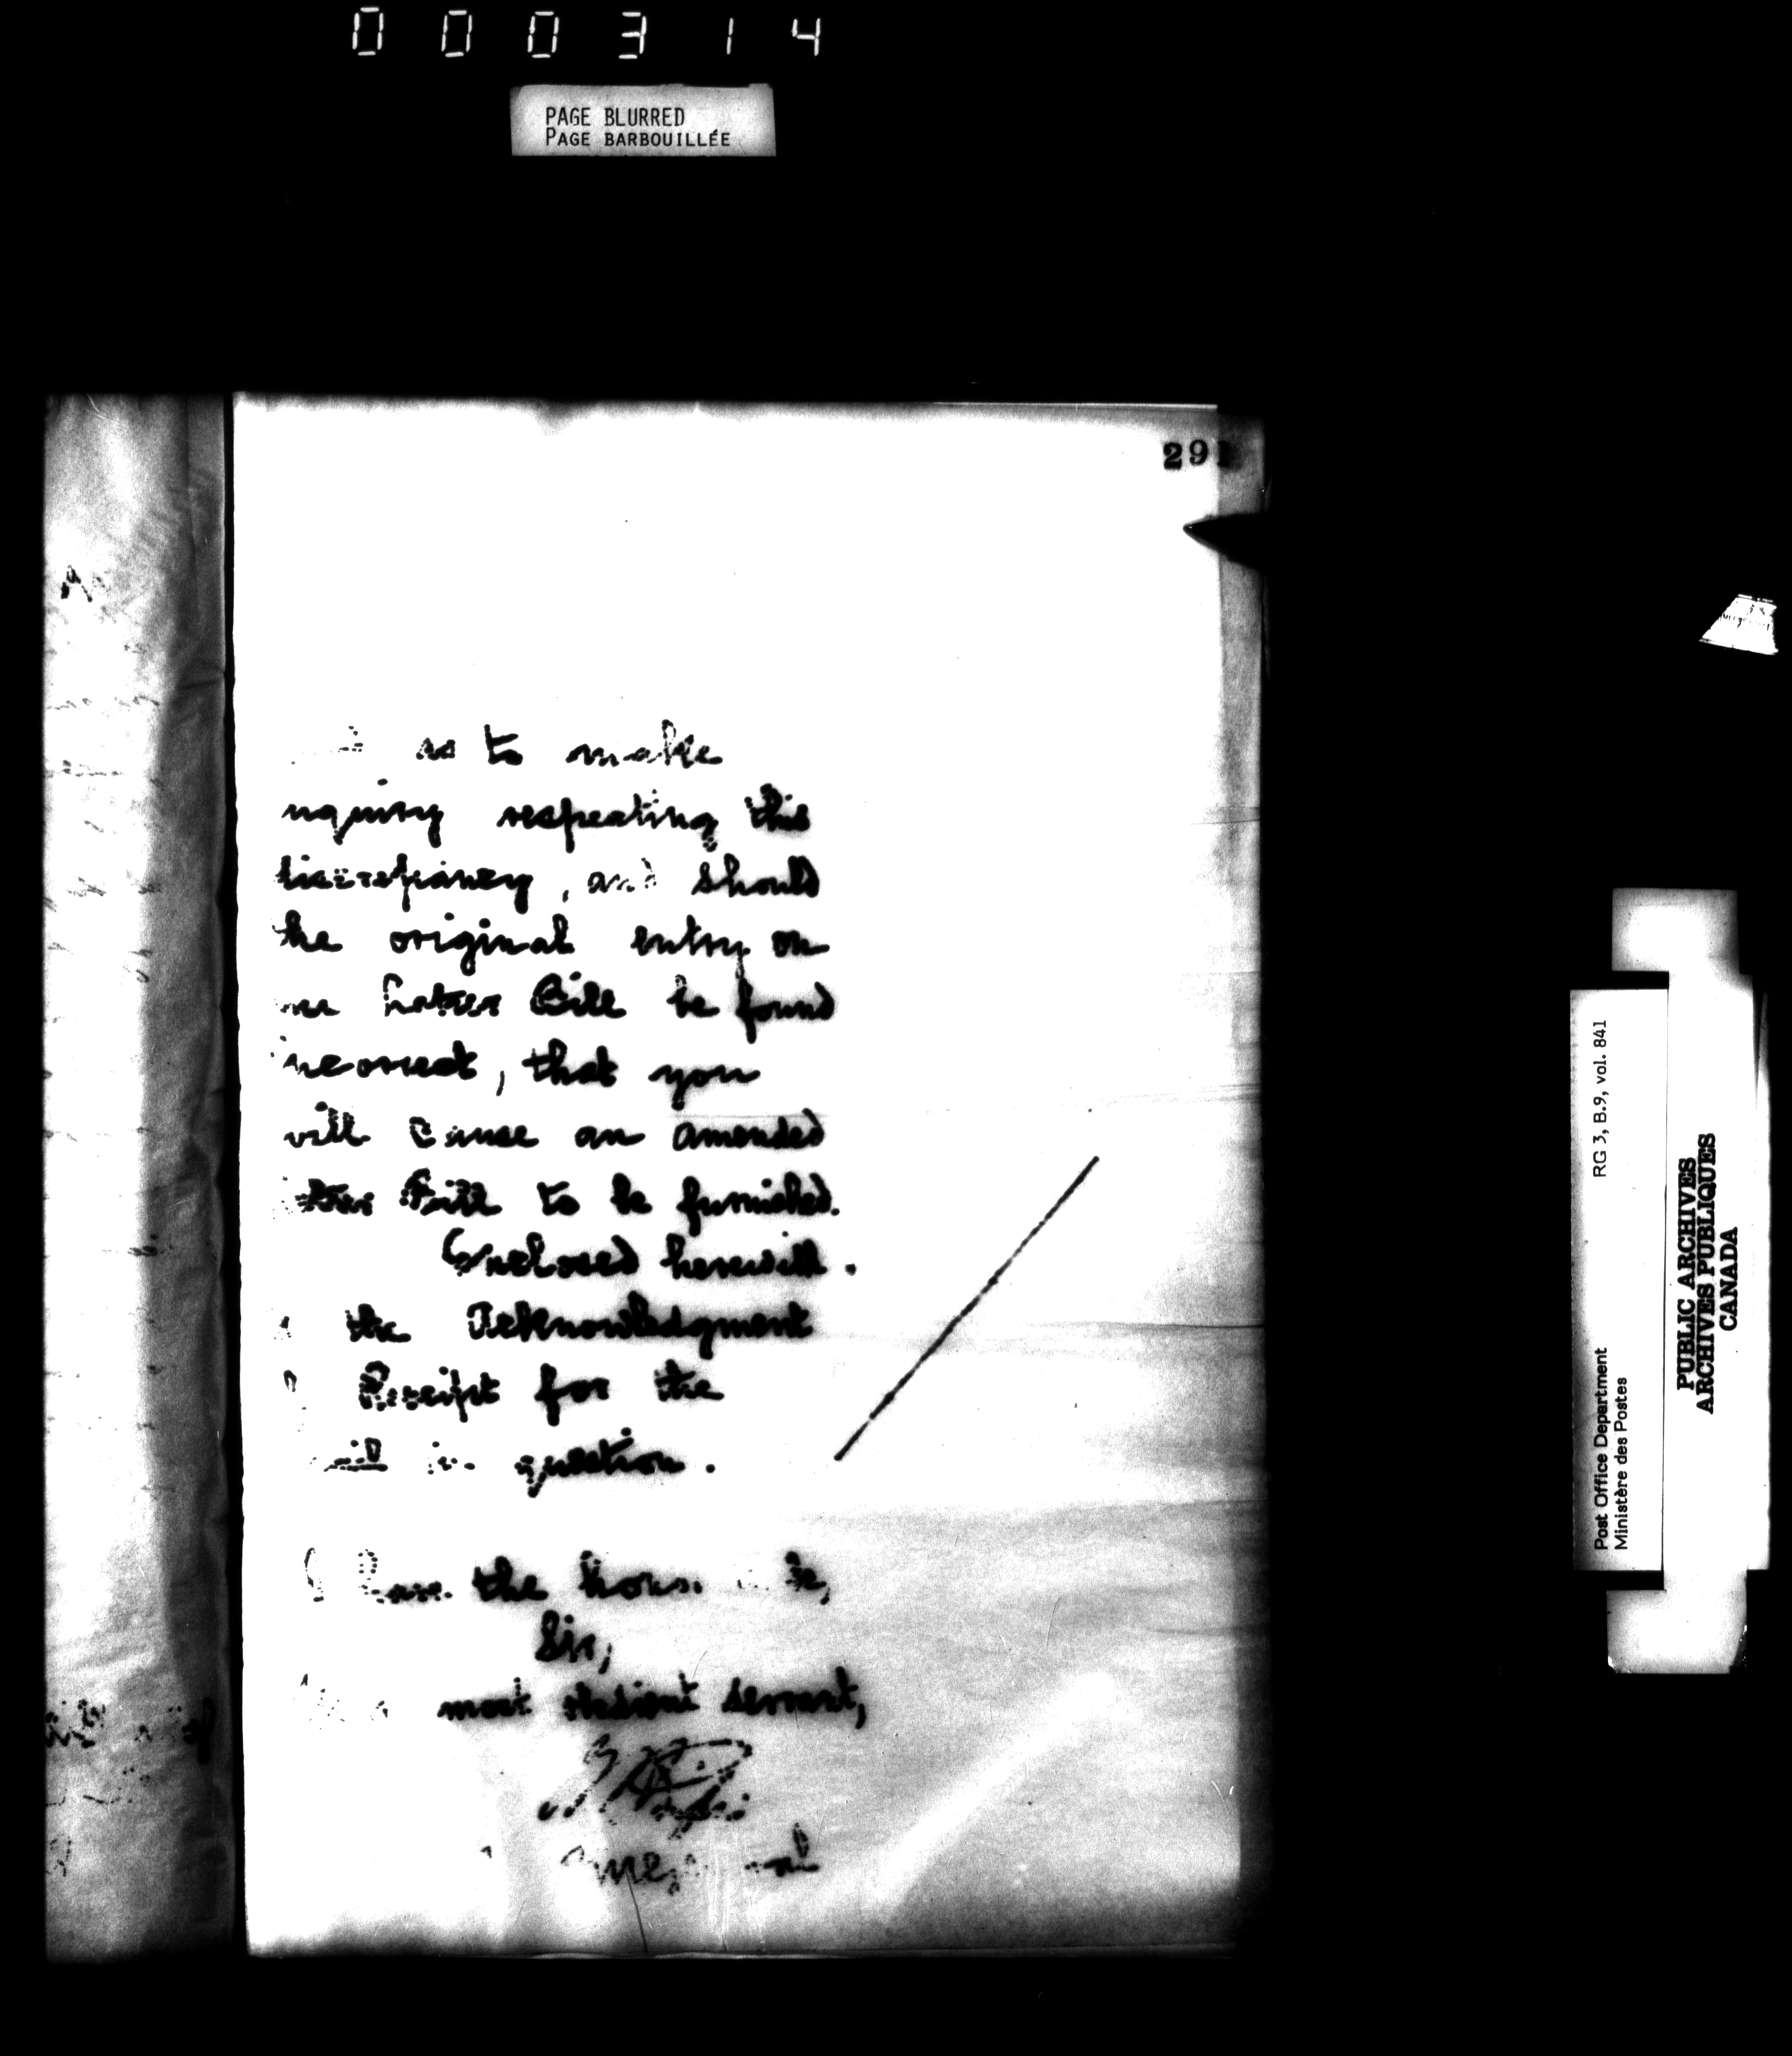 000314
PAGE BLURRED
PAGE BARBOUILLÉE
291
as to make
nquiry respecting this
discrepancy, and should
the original entry on
Letter Bill be found
incorrect, that you
will cause an amended
Bill to be furnished.
Enclosed herewith
the Acknowledgment
Receipt for the
in question.
have the honour be,
Sir,
most obedient servant,
RG 3, B.9, vol. 841
Post Office Department
Ministère des Postes
PUBLIC ARCHIVES
ARCHIVES PUBLIQUES
CANADA